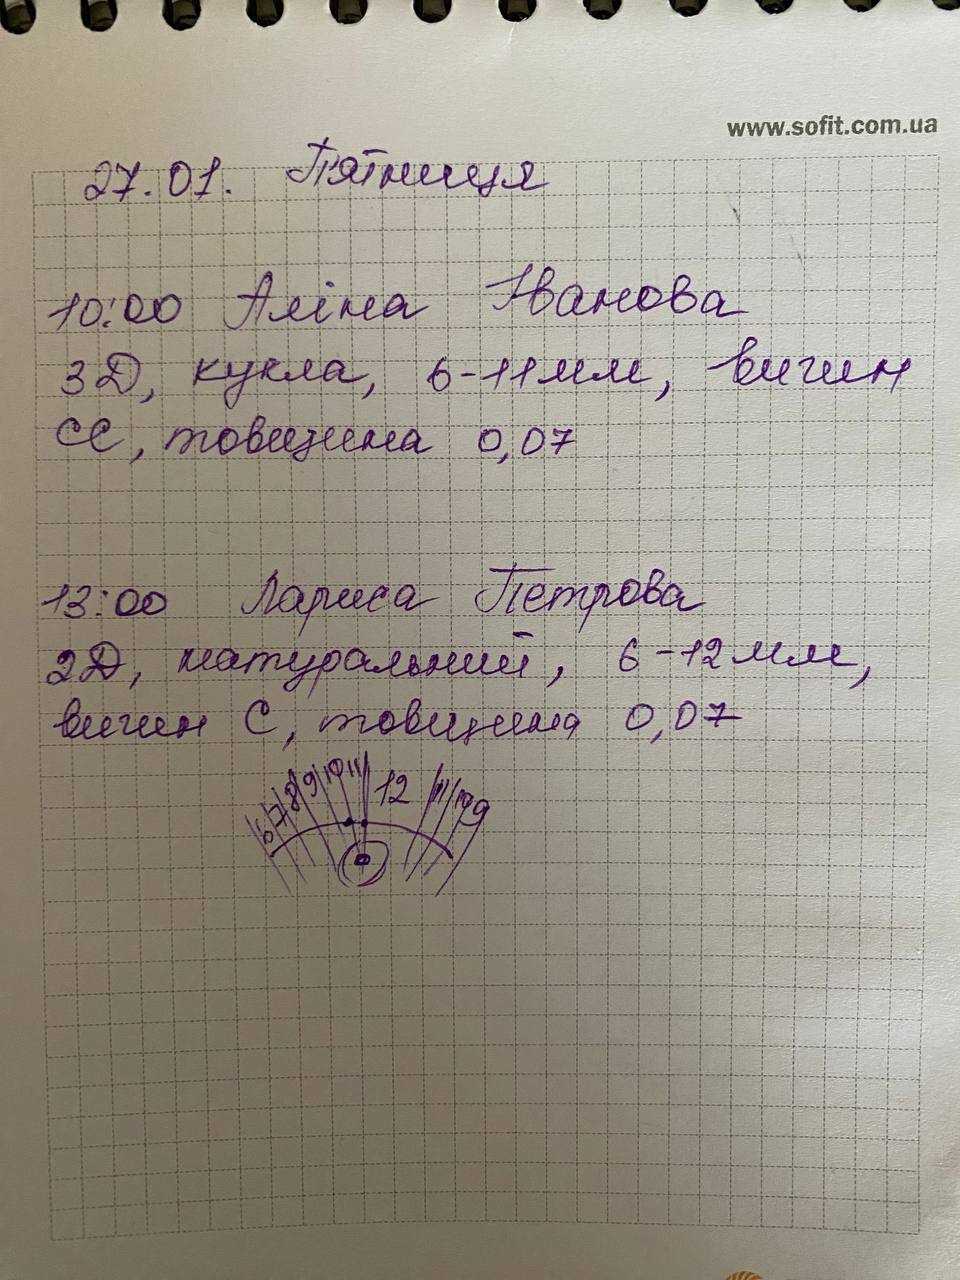 www.sofit.com.ua
27.01. П'ятниця
10:00 Аліна Іванова
3Д, кукла, 6-11мм, вигин
СС, товщина 0,07
13:00 Лариса Петрова
2Д, натуральний, 6-12мм,
вигин С, товщина 0,07
6 7 8 9 10 11 12 11 10 9